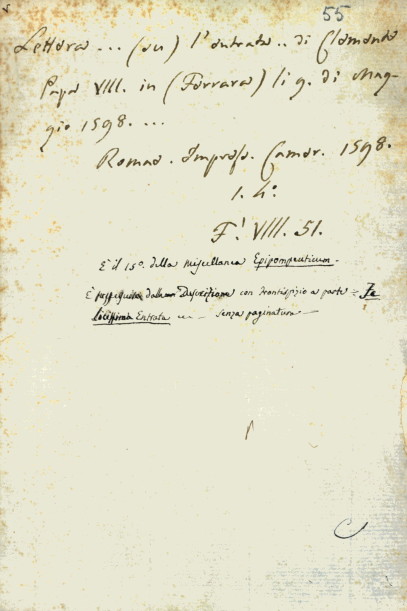 55
Lettera ... (su) l'entrata .. di Clemente
Papa VIII. in (Ferrara) li 9. di Mag-
gio 1598. ...
Romae. Impress. Camer. 1598.
1. 4º.
F! VIII. 51.
È il 15º. della Miscellanea Epipompeuticum.
È susseguita dalla Descrizione con frontispizio a parte = Fe
licissima Entrata — senza paginatura —